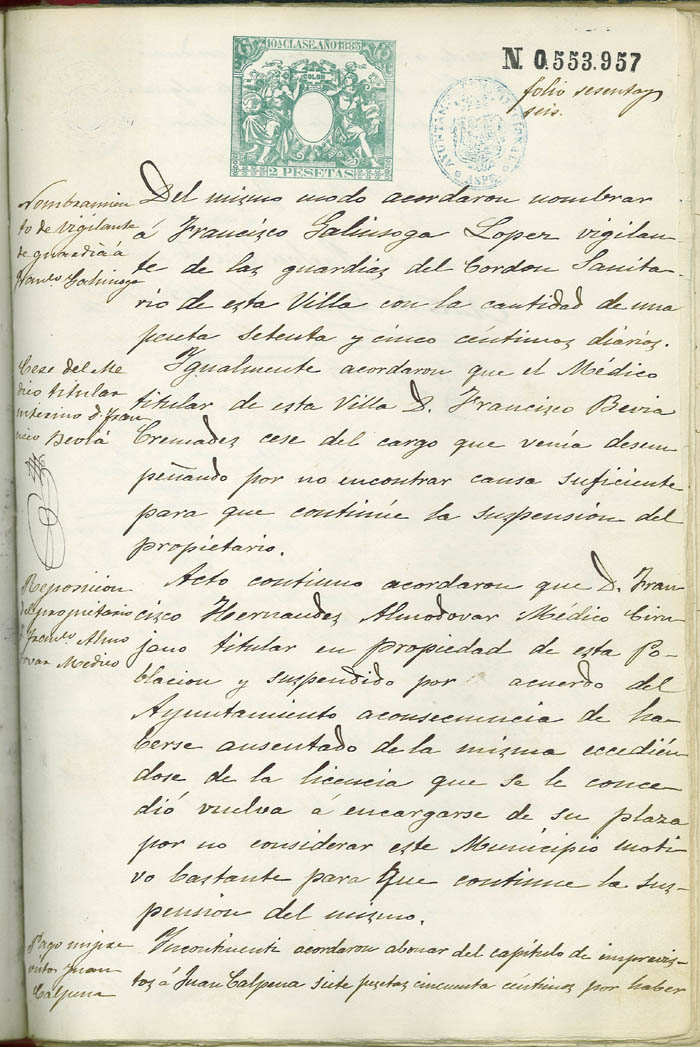 10ª CLASE. AÑO 1885
2 PESETAS
N. 0.553.957
folio sesenta y
seis.
Nombramien
to de vigilante
de guardia á
Franco. Galinsoga
Del mismo modo acordaron nombrar
á Francisco Galinsoga Lopez vigilan-
te de las guardias del Cordon Sanita-
rio de esta Villa con la cantidad de una
peseta setenta y cinco céntimos diarios.
Cese del Mé
dico titular
interino D. Fran
cisco Beviá
Igualmente acordaron que el Médico
titular de esta Villa D. Francisco Bevia
Cremades cese del cargo que venía desem
peñando por no encontrar causa suficiente
para que continúe la suspensión del
propietario.
Reposicion
del propietario
D. Franco. Almo
dovar Medico
Acto continuo acordaron que D. Fran
cisco Hernandez Almodovar Médico Ciru
jano titular en propiedad de esta Po-
blacion y suspendido por acuerdo del
Ayuntamiento aconsecuencia de ha-
berse ausentado de la misma eccedién
dose de la licencia que se le conce-
dió vuelva á encargarse de su plaza
por no considerar este Municipio moti
vo bastante para que continue la sus-
pension del mismo.
Pago
Juan
Calpena
Incontinenti acordaron abonar del capítulo de imprevis-
tos á Juan Calpena siete pesetas cincuenta céntimos por haber